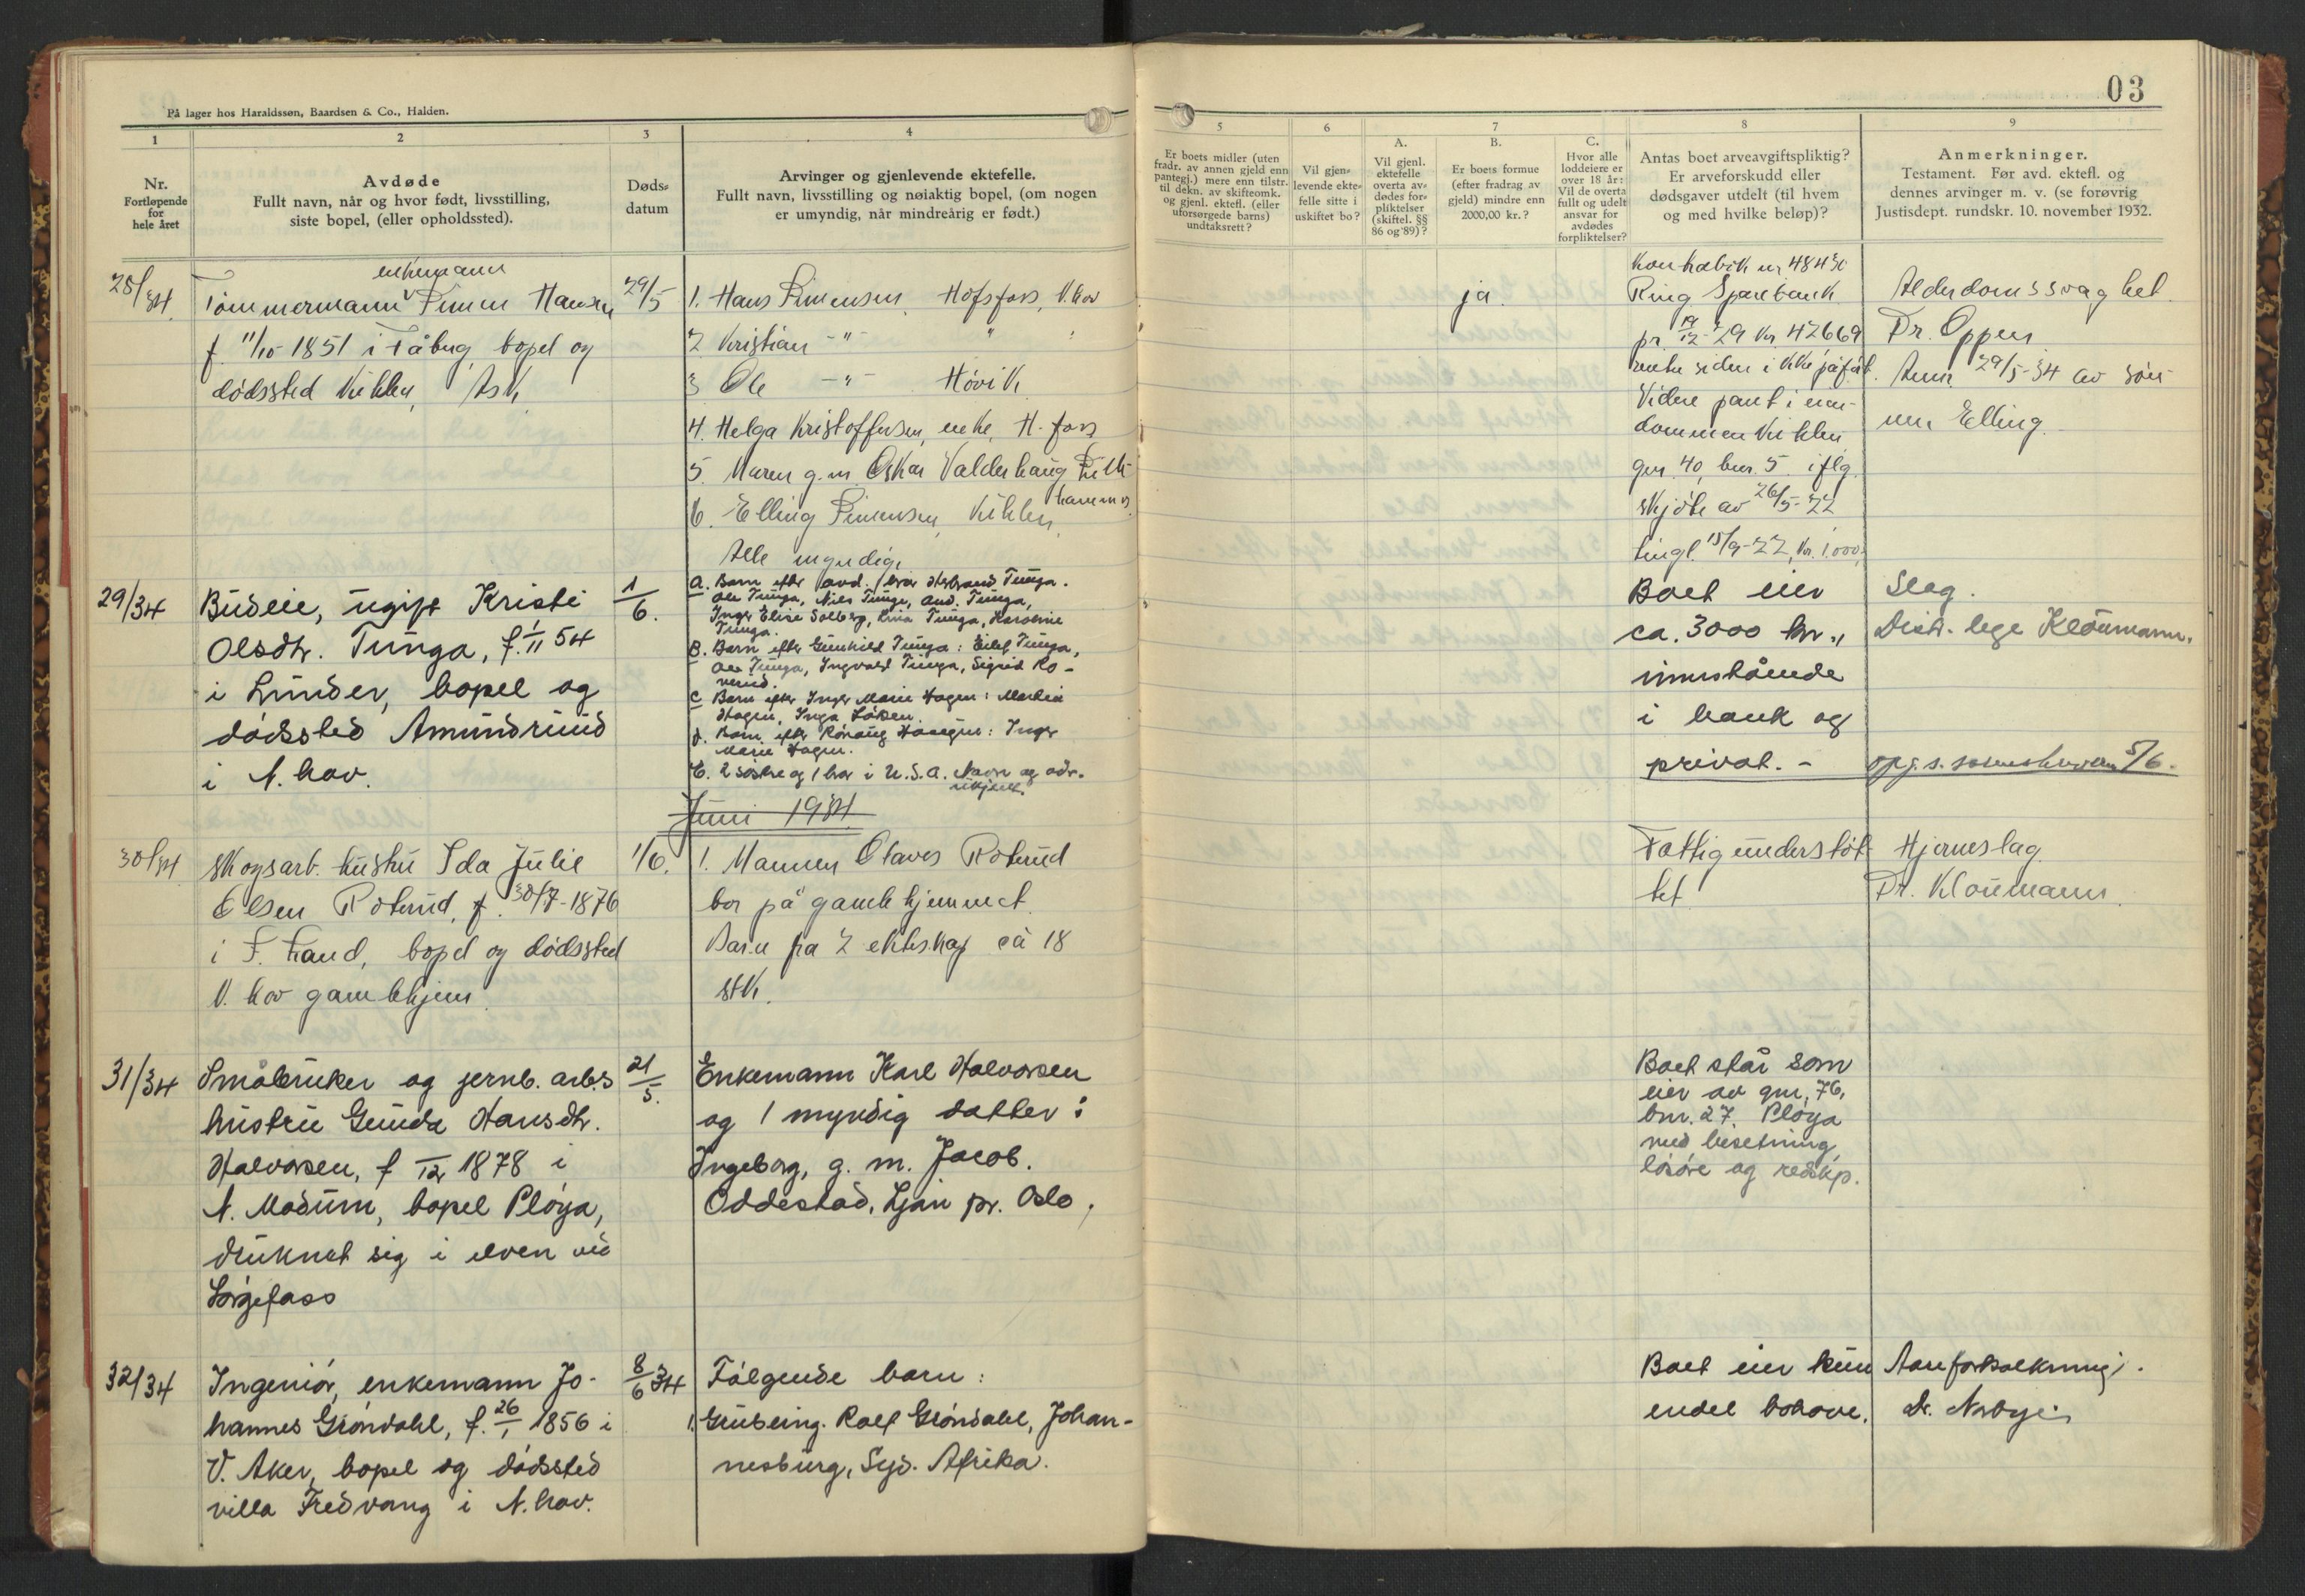 03
På lager hos Haraldssøn, Baardsen & Co., Halden.
1
Nr.
Fortløpende
for
hele året
2
Avdøde
Fullt navn, når og hvor født, livsstilling,
siste bopel, (eller opholdssted).
3
Døds-
datum
4
Arvinger og gjenlevende ektefelle.
Fullt navn, livsstilling og nøiaktig bopel, (om nogen
er umyndig, når mindreårig er født.)
5
Er boets midler (uten
fradr. av annen gjeld enn
pantegj.) mere enn tilstr.
til dekn. av skifteomk.
og gjenl. ektefl. (eller
uforsørgede barns)
undtaksrett?
6
Vil gjen-
levende ekte-
felle sitte i
uskiftet bo?
7
A.
Vil gjenl.
ektefelle
overta av-
dødes for-
pliktelser
(skiftel. §§
86 og 89)?
B.
Er boets formue
(efter fradrag av
gjeld) mindre enn
2000,00 kr.?
C.
Hvor alle
loddeiere er
over 18 år:
Vil de overta
fullt og udelt
ansvar for
avdødes
forpliktelser?
8
Antas boet arveavgiftspliktig?
Er arveforskudd eller
dødsgaver utdelt (til hvem
og med hvilke beløp)?
9
Anmerkninger.
Testament. Før avd. ektefl. og
dennes arvinger m. v. (se forøvrig
Justisdept. rundskr. 10. november 1932.
28/34.
enkemann
Tømmermann Simen Hansen
f. 11/10-1851 i Fåberg, bopel og
dødssted Viklen, Ask
29/5
1. Hans Simensen, Hofsfoss, N.hov
2 Kristian -"- "
3 Ole -"- Høvik
4. Helga Kristoffersen, enke, H-foss
5. Maren g.m. Oskar Valderhaug Lille-
hammer
6. Elling Simensen, Viklen,
Alle myndige
ja.
Kontrabok nr 48430
Ring. Sparebank
pr. 19/12-29 kr. 42669
rente siden ikke påført.
Videre pant i eien-
dommen Viklen
gnr. 40, bnr. 5. iflg.
skjøte av 26/5-22
tingl. 15/9-22, kr. 1.000,
Alderdomssvaghet
Dr. Oppen
Anm. 29/5-34 av søn-
nen Elling.
29/34
Budeie, ugift Kristi
Olsdtr. Tunga, f. 1/11 54
i Lunder, bopel og
dødssted Amundrud
i N.hov.
1/6.
a. Barn efter avd. bror Herbrand Tunga.
Ole Tunga, Nils Tunga, And. Tunga,
Inger Elise Solberg, Lina Tunga, Karoline
Tunga.
B. Barn efter Gunhild Tunga: Eilef Tunga,
Ole Tunga, Ingvald Tunga, Sigrid Ro-
verud.
C Barn efter Inger Marie Hagen: Martin
Hagen, Inga Løken.
d. Barn efter Rønaug Haugen: Inger
Marie Hagen.
E. 2 søstre og 1 bror i U.S.A. Navn og adr.
ukjent.
Boet eier
ca. 3000 kr.,
innestående
i bank og
privat. -
Slag.
Distr. lege Kloumann.
5/6.
Juni 1934
30/34
Skogsarb. hustru Ida Julie
Olsen Roterud, f. 30/7-1876
i F. land, bopel og dødssted
N. hov gamlehjem
1/6.
1. Mannen Olaves Roterud
bor på gamlehjemmet
Barn fra 2 ekteskap ca 18
stk.
Fattigunderstøt-
tet
Hjerneslag
Dr. Kloumann.
31/34
Småbruker og jernb. arb.s
hustru Gunda Hansdtr.
Halvorsen, f 1/12 1878 i
N. Modum, bopel Pløya,
druknet sig i elven ved
Sørgefoss
21/5.
Enkemann Karl Halvorsen
og 1 myndig datter:
Ingeborg, g. m. Jacob.
Oddestad, Ljan pr. Oslo.
Boet står som
eier av gnr. 76,
bnr. 27. Pløya
med besetning,
løsøre og redskp.
32/34
Ingeniør, enkemann Jo-
hannes Grøndahl, f. 26/1 1856 i
V. Aker, bopel og dødssted
villa Fredvang i N.hov.
8/6 34
Følgende barn:
1. Grubeing. Rolf Grøndahl, Johan-
nesburg, Syd. Afrika.
Boet eier kun
endel bohave.
Åreforkalkning.
Dr.